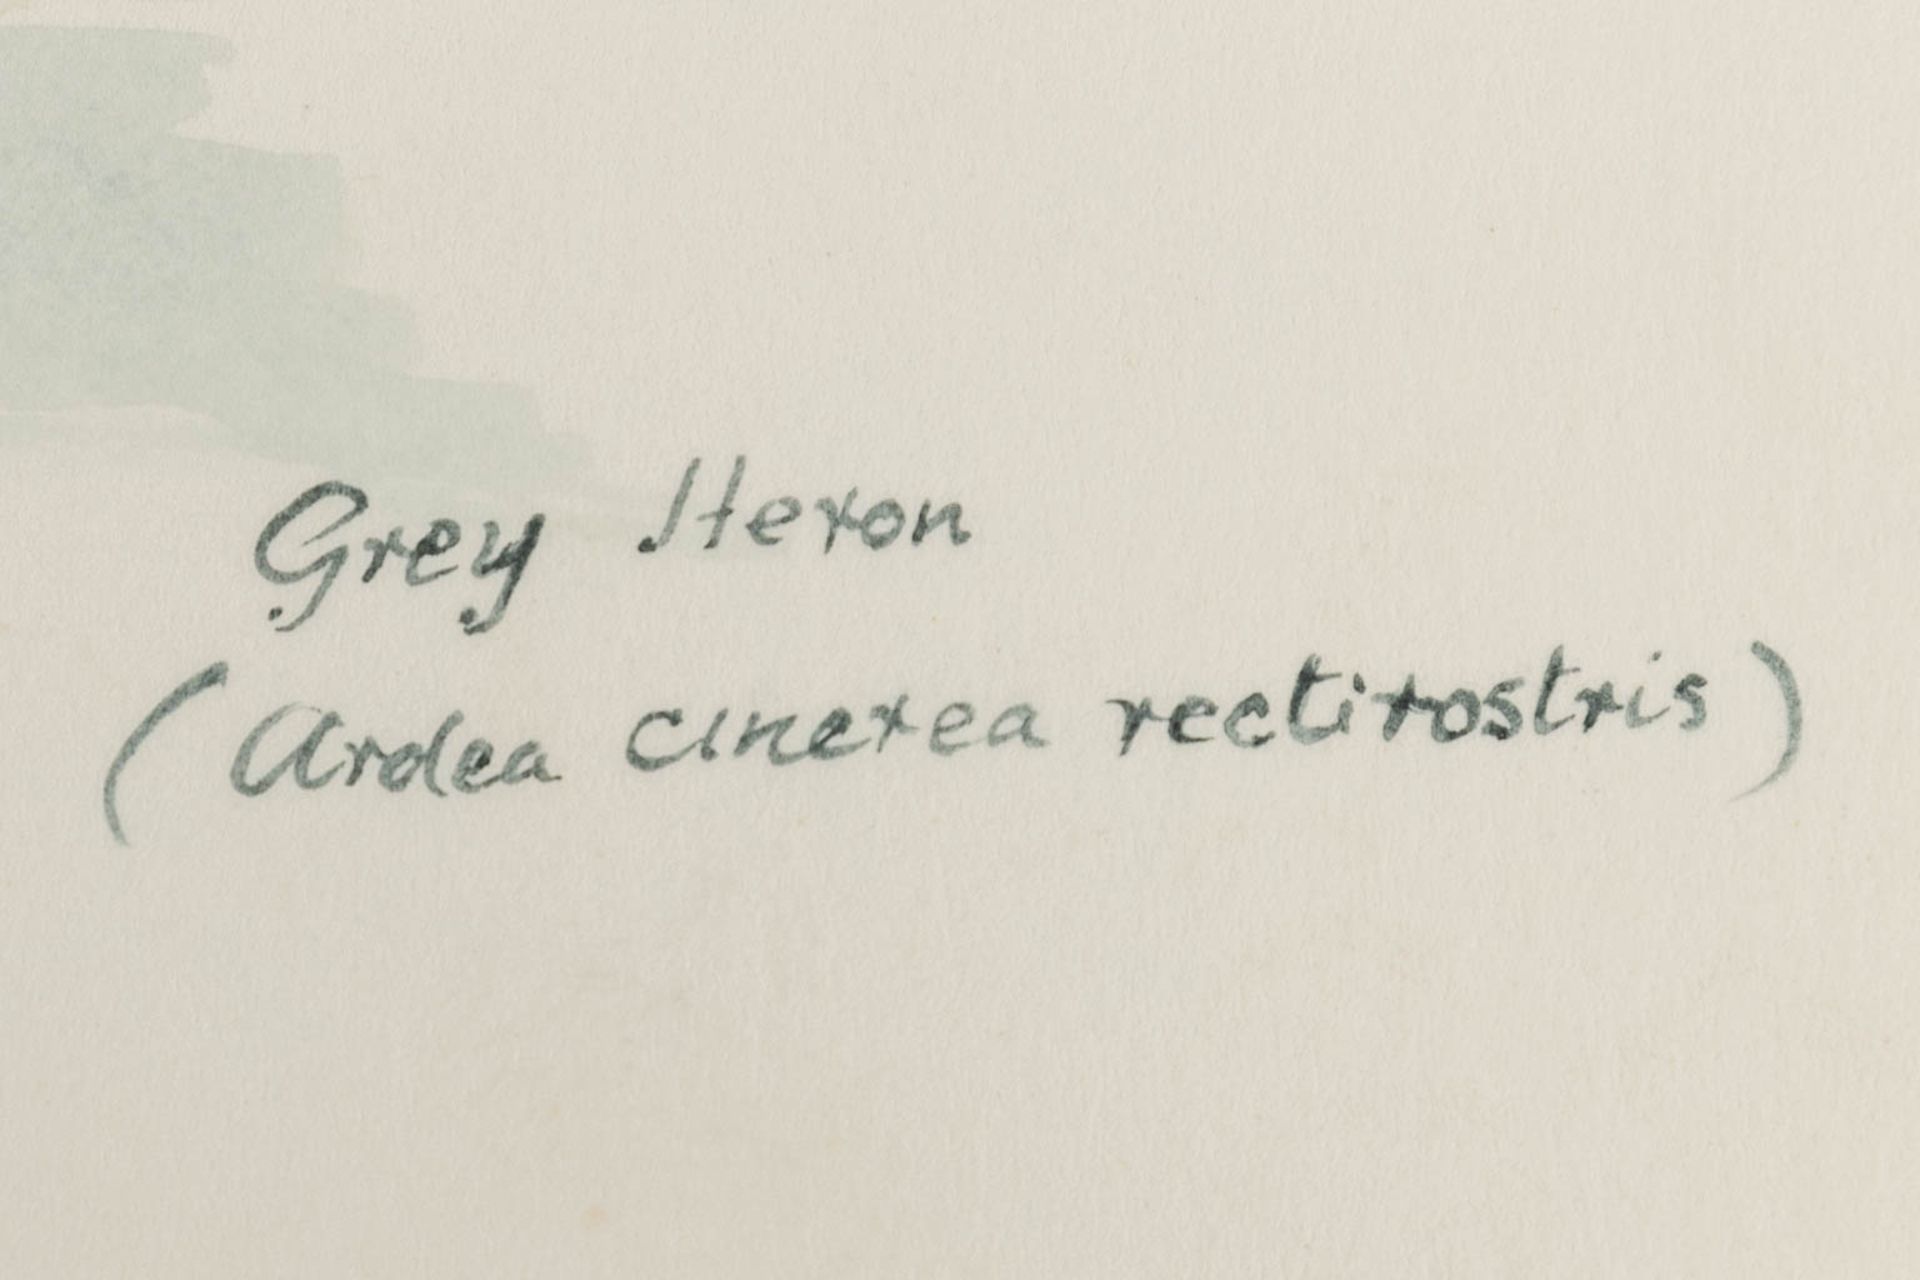 Grey Heron
(Ardea cinerea rectirostris)